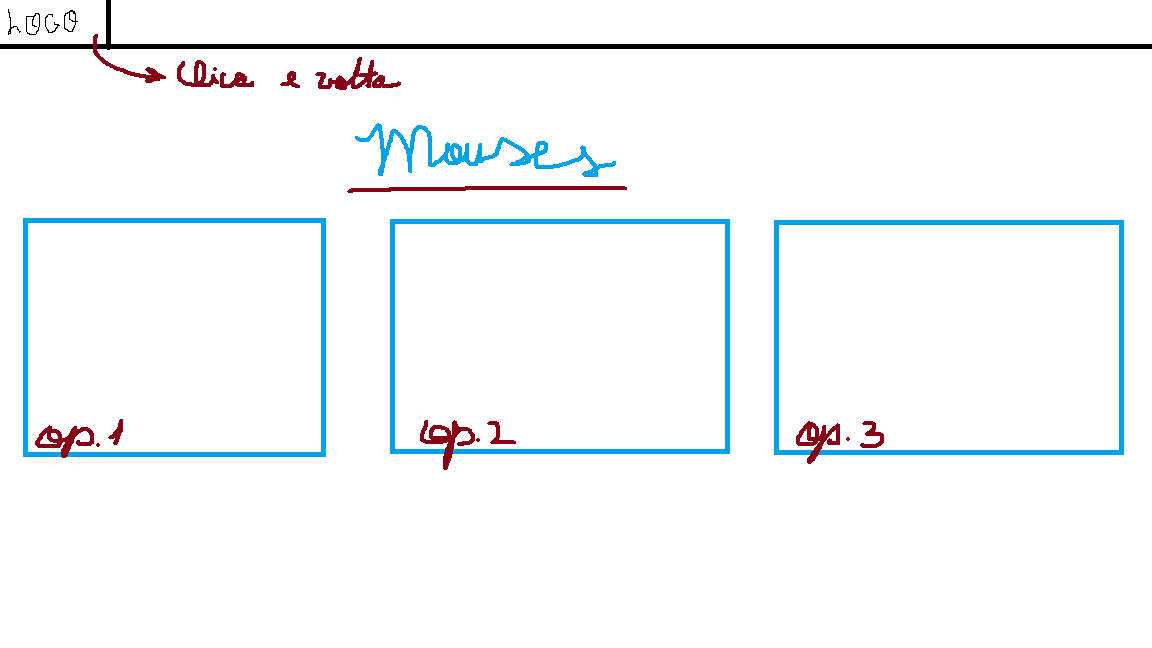 LOGO
Clica e volta
Mouses
op.1
op.2
op.3